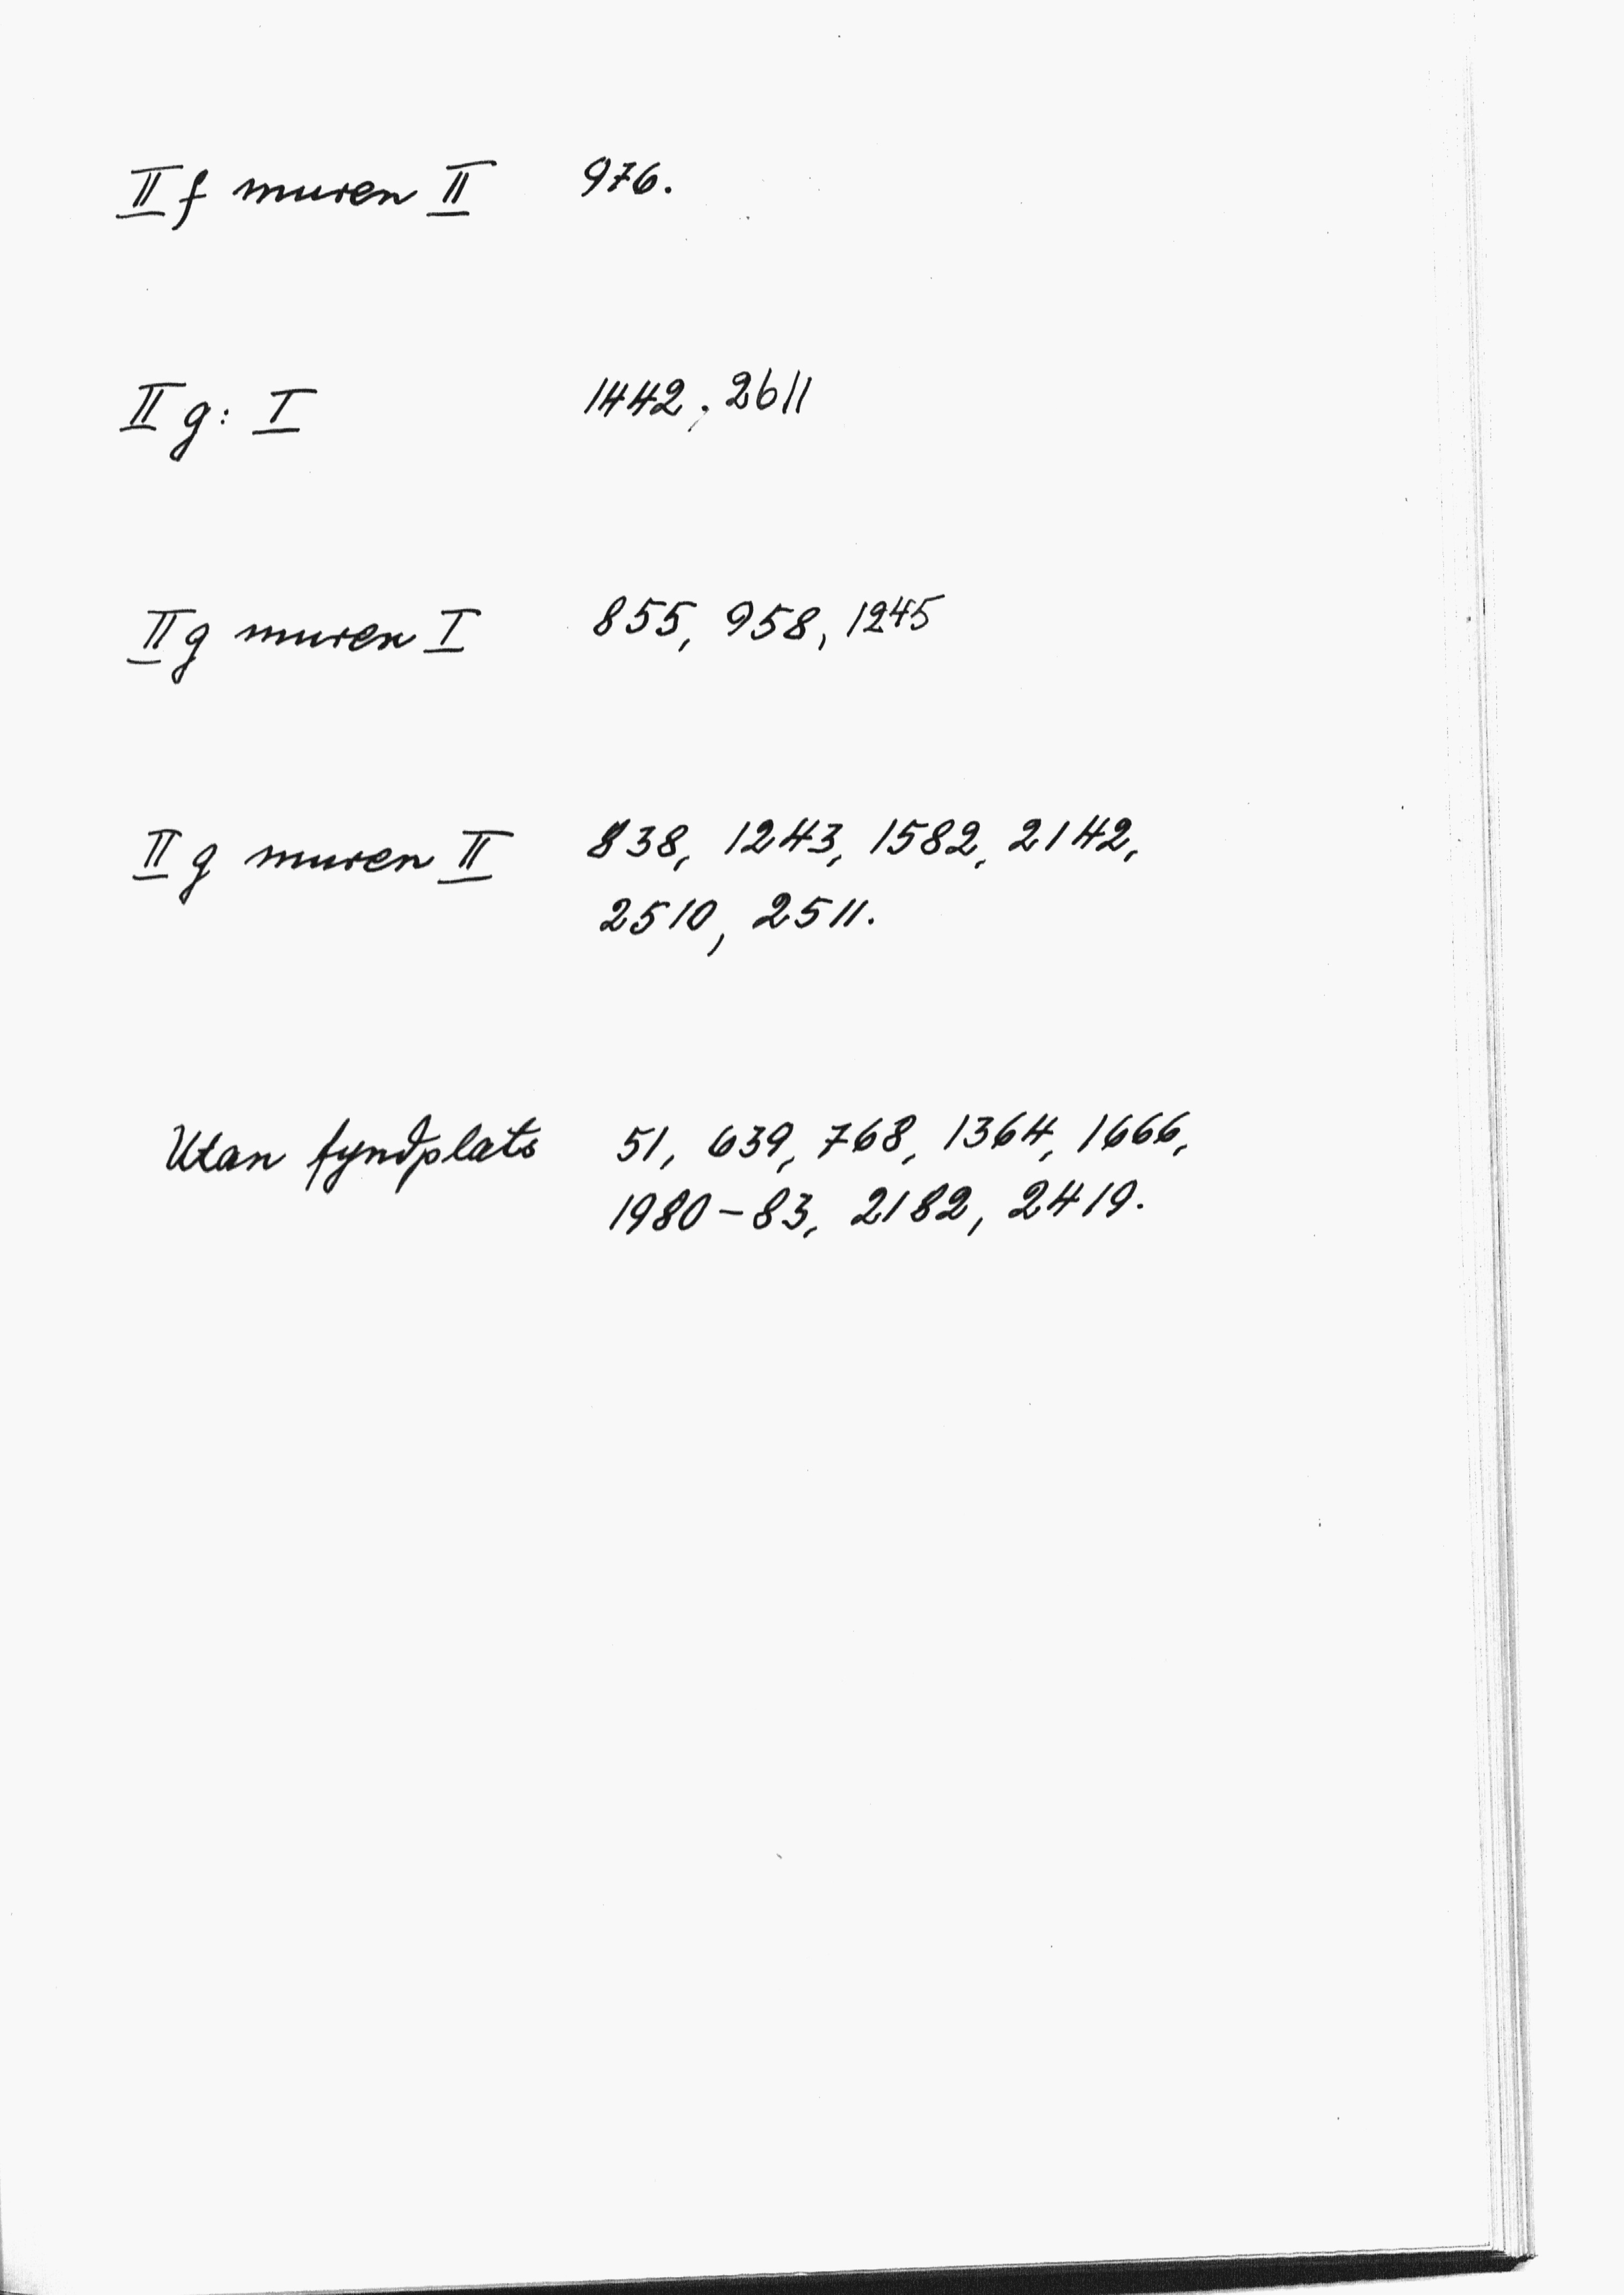 II f muren II 976.
II g: I 1442, 2611
II g muren I 855, 958, 1245
II g muren II 838, 1243, 1582, 2142,
2510, 2511.
Utan fyndplats 51, 639, 768, 1364, 1666,
1980-83, 2182, 2419.